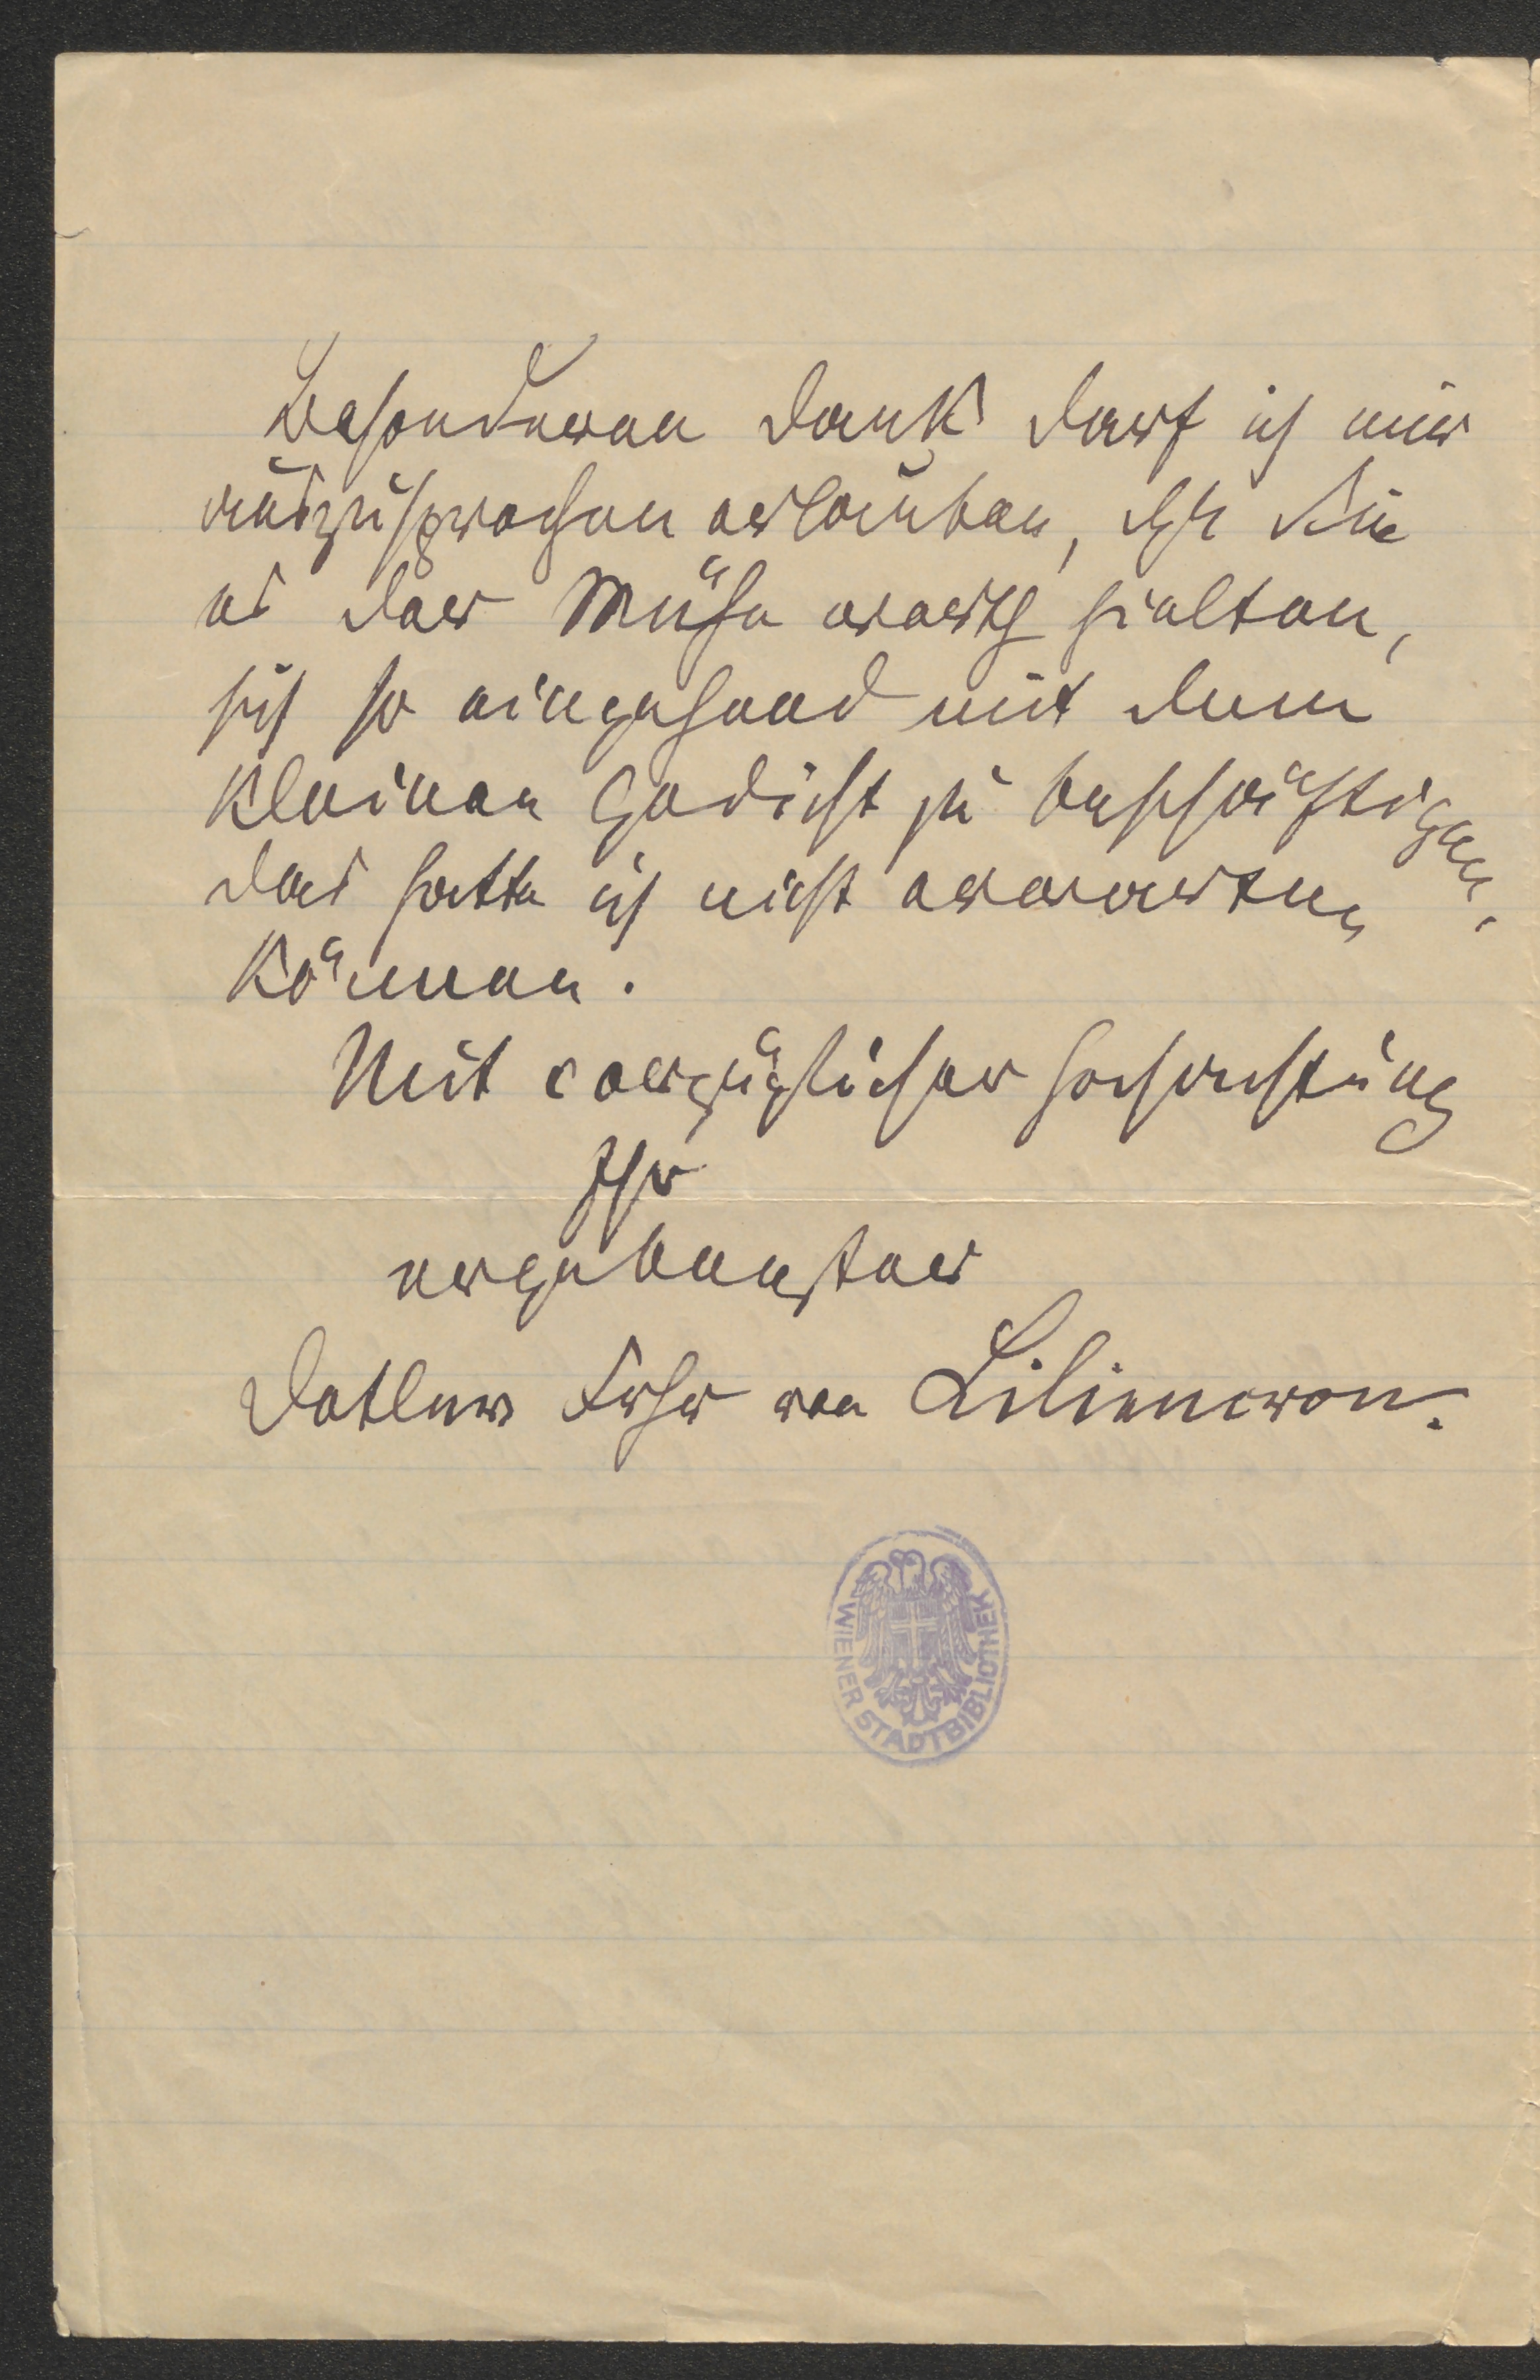 Besonderen Dank darf ich mir
auszusprechen erlauben, daß Sie
es der Mühe werth hielten,
sich so eingehend mit dem
kleinen Gedicht zu beschäftigen,
das hatte ich nicht erwarten
können.
Mit vorzüglicher Hochachtung
Ihr
ergebenster
Detlev Frhr von Liliencron.
WIENER STADTBIBLIOTHEK